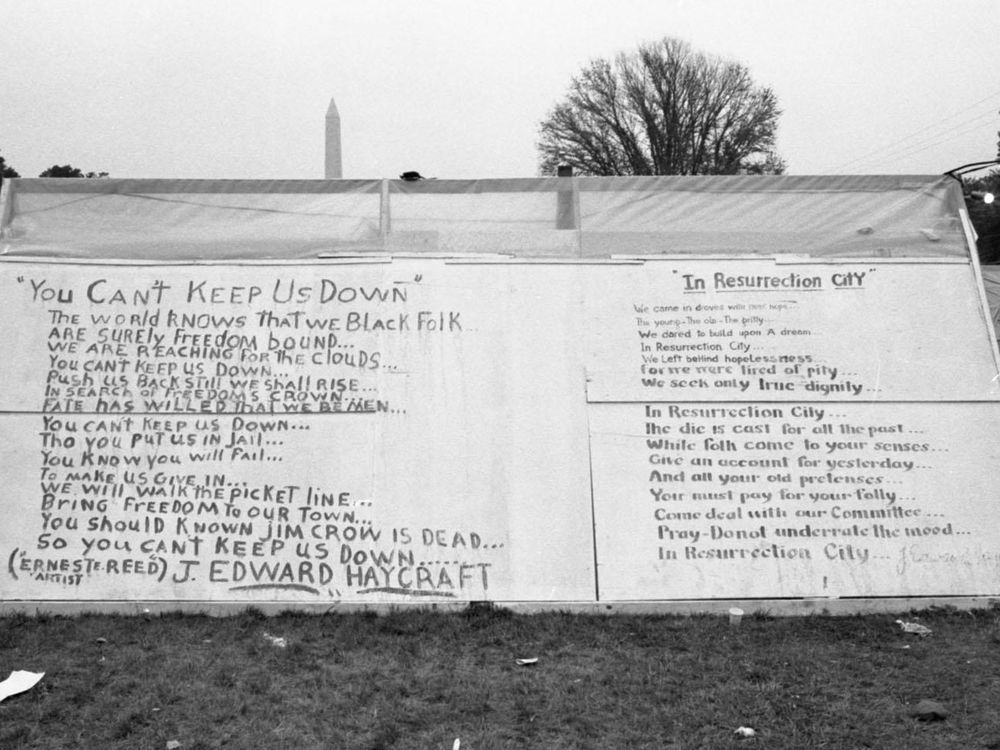 "You CAN'T KEEP US DOWN"
THE WORLD KNOWS THAT WE BLACK FOLK
ARE SURELY FREEDOM BOUND...
WE ARE REACHING FOR THE CLOUDS...
YOU CAN'T KEEP US DOWN...
PUSH US BACK STILL WE SHALL RISE...
IN SEARCH OF FREEDOM'S CROWN...
FATE HAS WILLED THAT WE BE MEN...
YOU CAN'T KEEP US DOWN...
THO YOU PUT US IN JAIL...
YOU KNOW YOU WILL FAIL...
TO MAKE US GIVE IN...
WE WILL WALK THE PICKET LINE...
BRING FREEDOM TO OUR TOWN...
YOU SHOULD KNOWN JIM CROW IS DEAD...
SO YOU CAN'T KEEP US DOWN......
(ERNESTE REED) J. EDWARD HAYCRAFT
"ARTIST"
"In Resurrection City"
We came in droves with new hope...
The young-The old-The pritty...
We dared to build upon A dream...
In Resurrection City...
We Left behind hopelessness...
For we were tired of pity...
We seek only true dignity...
In Resurrection City...
The die is cast for all the past...
While folh come to your senses...
Give an account for yesterday...
And all your old pretenses...
You must pay for your folly...
Come deal with our Committee...
Pray-Donot underrate the mood...
In Resurrection City...